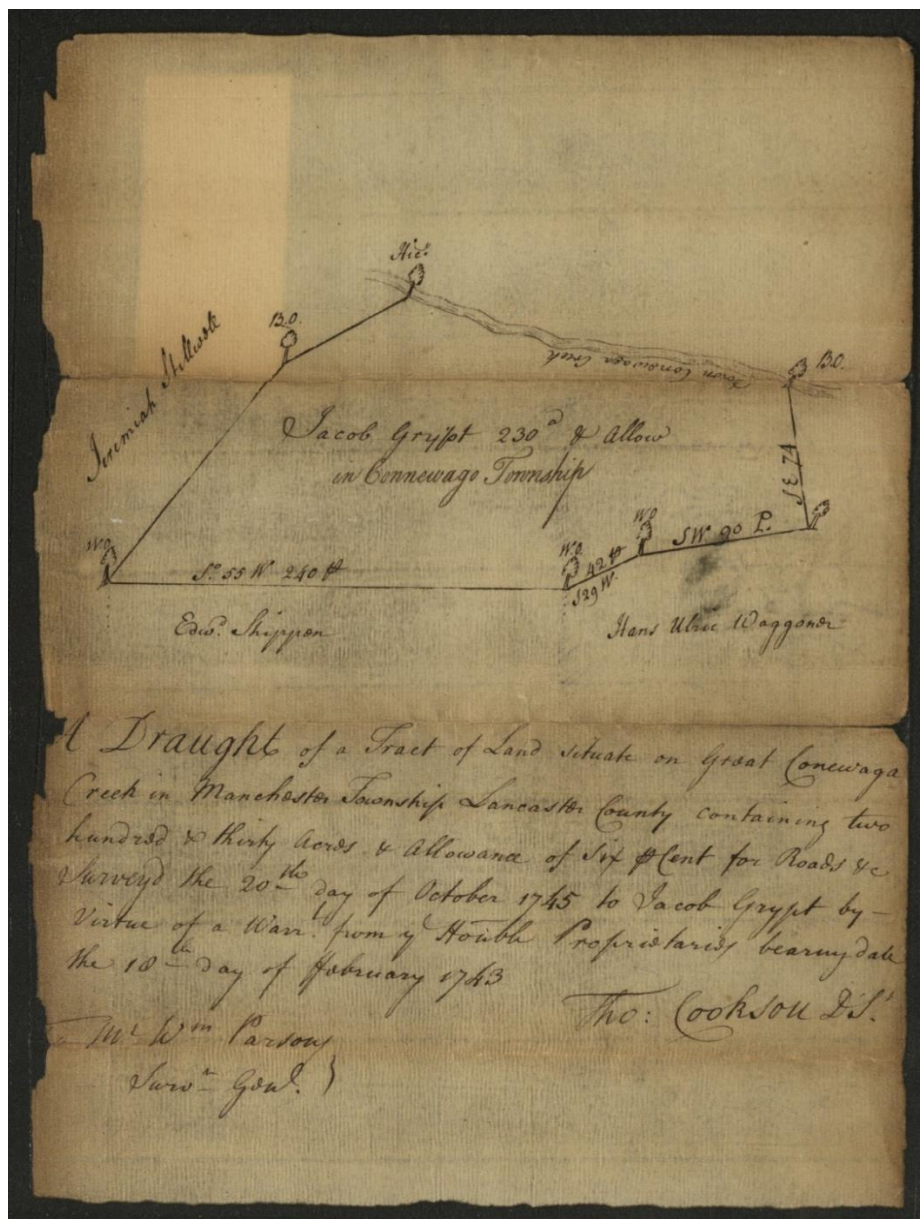 Hic.
B.O.
B.O.
Jeremiah Stillwole
Conewago Creek
Jacob Grypt 230 a & Allow
in Connewago Township
S E 74
W.O.
W.O.
W.O.
S W 90 P.
42 P
S 29 W.
So. 55 W 240 P
Edwd. Shippen
Hans Ulric Waggoner
A Draught of a Tract of Land situate on Great Conewaga
Creek in Manchester Township Lancaster County containing two
hundred & thirty Acres & Allowance of Six P Cent for Roads &c
Surveyd the 20th day of October 1745 to Jacob Grypt by -
Virtue of a Warrt. from ye Honble Proprietaries bearing date
the 18th day of February 1743
Tho: Cookson D.S.
Mr Wm Parsons
Survr Genl. }